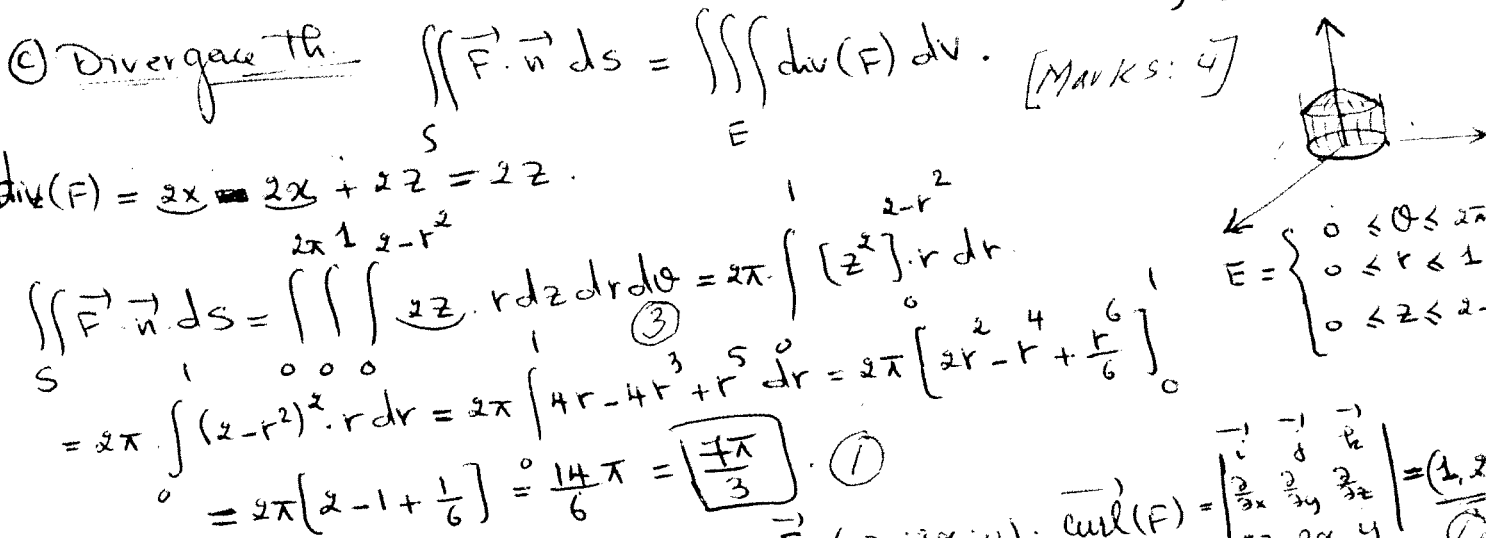 ⓒ Divergace Th. ∬_S F⃗.n⃗ ds = ∭_E div(F) dv. [Marks: 4]
div(F) = 2x - 2x + 2z = 2z.
∬_S F⃗.n⃗.ds = ∫_0^{2π} ∫_0^1 ∫_0^{2-r²} 2z. rdzdrdθ = 2π.∫_0^1 [z²]_0^{2-r²}.r dr. ③
E = { 0 ≤ θ ≤ 2π
0 ≤ r ≤ 1
0 ≤ z ≤ 2-
= 2π.∫_0^1 (2-r²)².r dr = 2π ∫_0^1 4r-4r³+r⁵ dr = 2π [2r²-r⁴+r⁶/6]_0^1
= 2π[2-1+1/6] = 14/6 π = 7π/3. ①
curl(F) = | i⃗ j⃗ k⃗
∂/∂x ∂/∂y ∂/∂z
2x y | = (1, 2